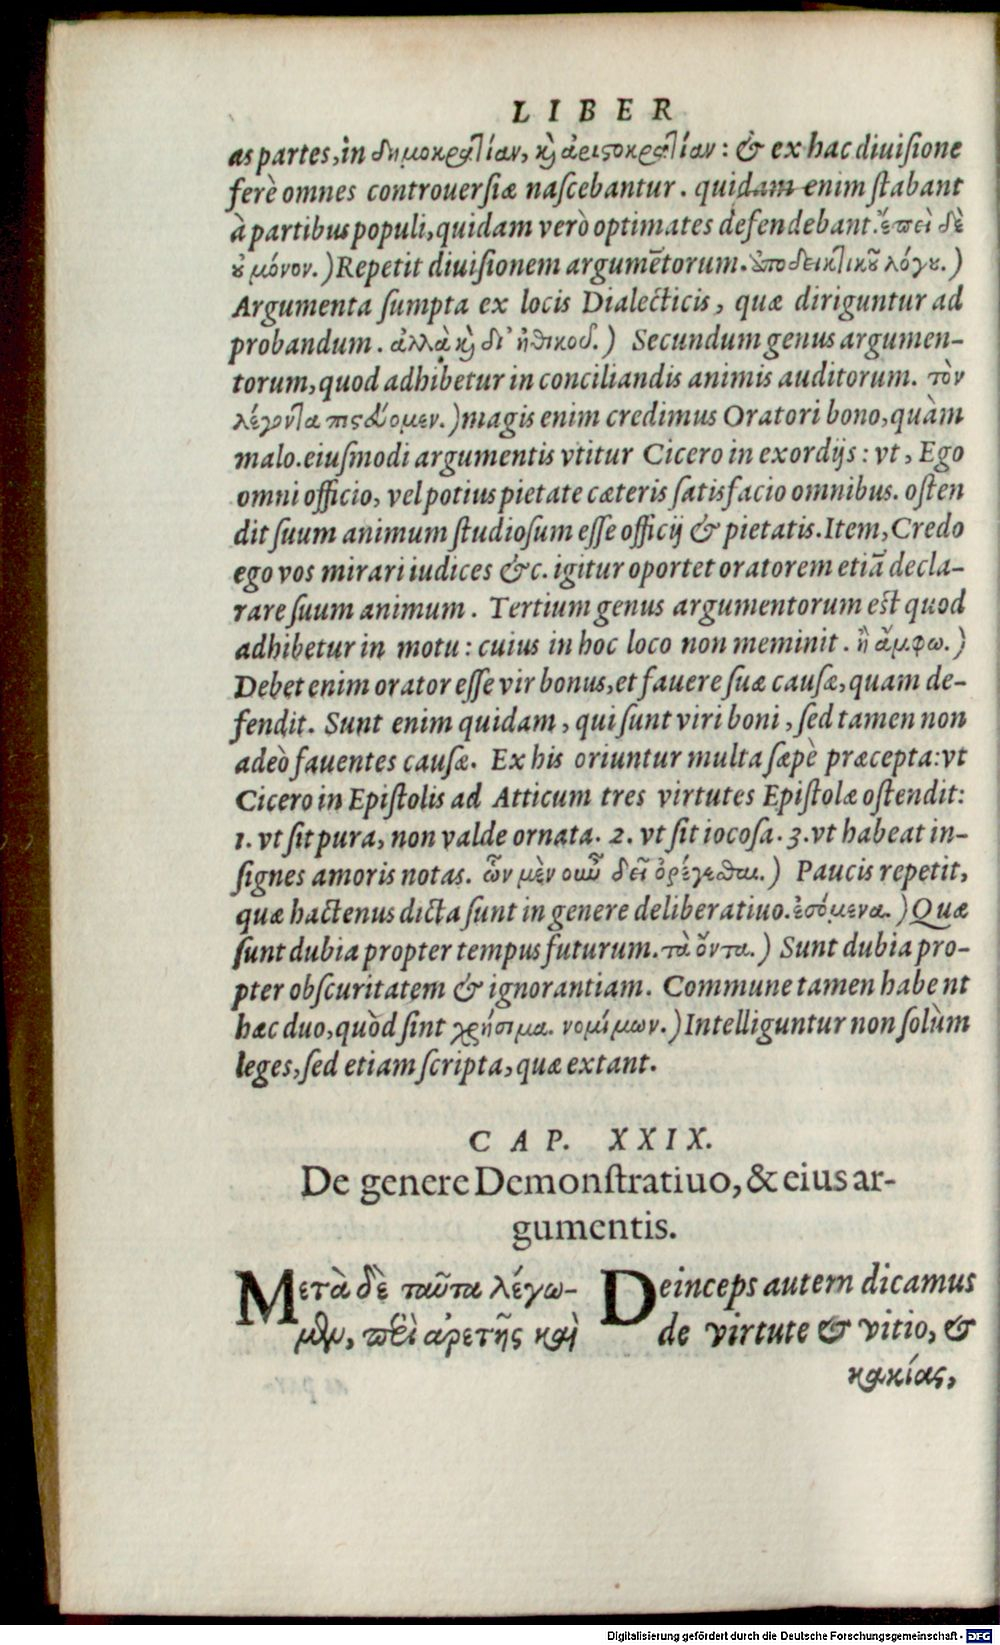 LIBER
as partes, in δημοκρατίαν, κὶ ἀριςοκρατίαν: & ex hac diuiſione
ferè omnes controuerſiæ naſcebantur. quidam enim ſtabant
à partibus populi, quidam verò optimates defendebant. ἔπεὶ δὲ
ȣ μόνον.) Repetit diuiſionem argumẽtorum. ἀποδεικτικȣ͂ λόγȣ.)
Argumenta ſumpta ex locis Dialecticis, quæ diriguntur ad
probandum. ἀλλὰ κὶ δι' ἠθικοῦ.) Secundum genus argumen-
torum, quod adhibetur in conciliandis animis auditorum. τὸν
λέγοντα πιςεύομεν.) magis enim credimus Oratori bono, quàm
malo. eiuſmodi argumentis vtitur Cicero in exordijs: vt, Ego
omni officio, vel potius pietate cæteris ſatisfacio omnibus. oſten
dit ſuum animum ſtudioſum eſſe officij & pietatis. Item, Credo
ego vos mirari iudices &c. igitur oportet oratorem etiã decla-
rare ſuum animum. Tertium genus argumentorum eſt quod
adhibetur in motu: cuius in hoc loco non meminit. ἢ ἄμφω.)
Debet enim orator eſſe vir bonus, et fauere ſuæ cauſæ, quam de-
fendit. Sunt enim quidam, qui ſunt viri boni, ſed tamen non
adeò fauentes cauſæ. Ex his oriuntur multa ſæpè præcepta: vt
Cicero in Epiſtolis ad Atticum tres virtutes Epiſtolæ oſtendit:
1. vt ſit pura, non valde ornata. 2. vt ſit iocoſa. 3. vt habeat in-
ſignes amoris notas. ὧν μὲν οὖν δεῖ ὀρέγεσθαι.) Paucis repetit,
quæ hactenus dicta ſunt in genere deliberatiuo. ἐσόμενα.) Quæ
ſunt dubia propter tempus futurum. τὰ ὄντα.) Sunt dubia pro-
pter obſcuritatem & ignorantiam. Commune tamen habent
hæc duo, quòd ſint χρήσιμα. νομίμων.) Intelliguntur non ſolùm
leges, ſed etiam ſcripta, quæ extant.
CAP. XXIX.
De genere Demonſtratiuo, & eius ar-
gumentis.
Μετὰ δὲ ταῦτα λέγω-
μεν, περὶ ἀρετῆς καὶ
Deinceps autem dicamus
de virtute & vitio, &
κακίας,
Digitalisierung gefördert durch die Deutsche Forschungsgemeinschaft - DFG